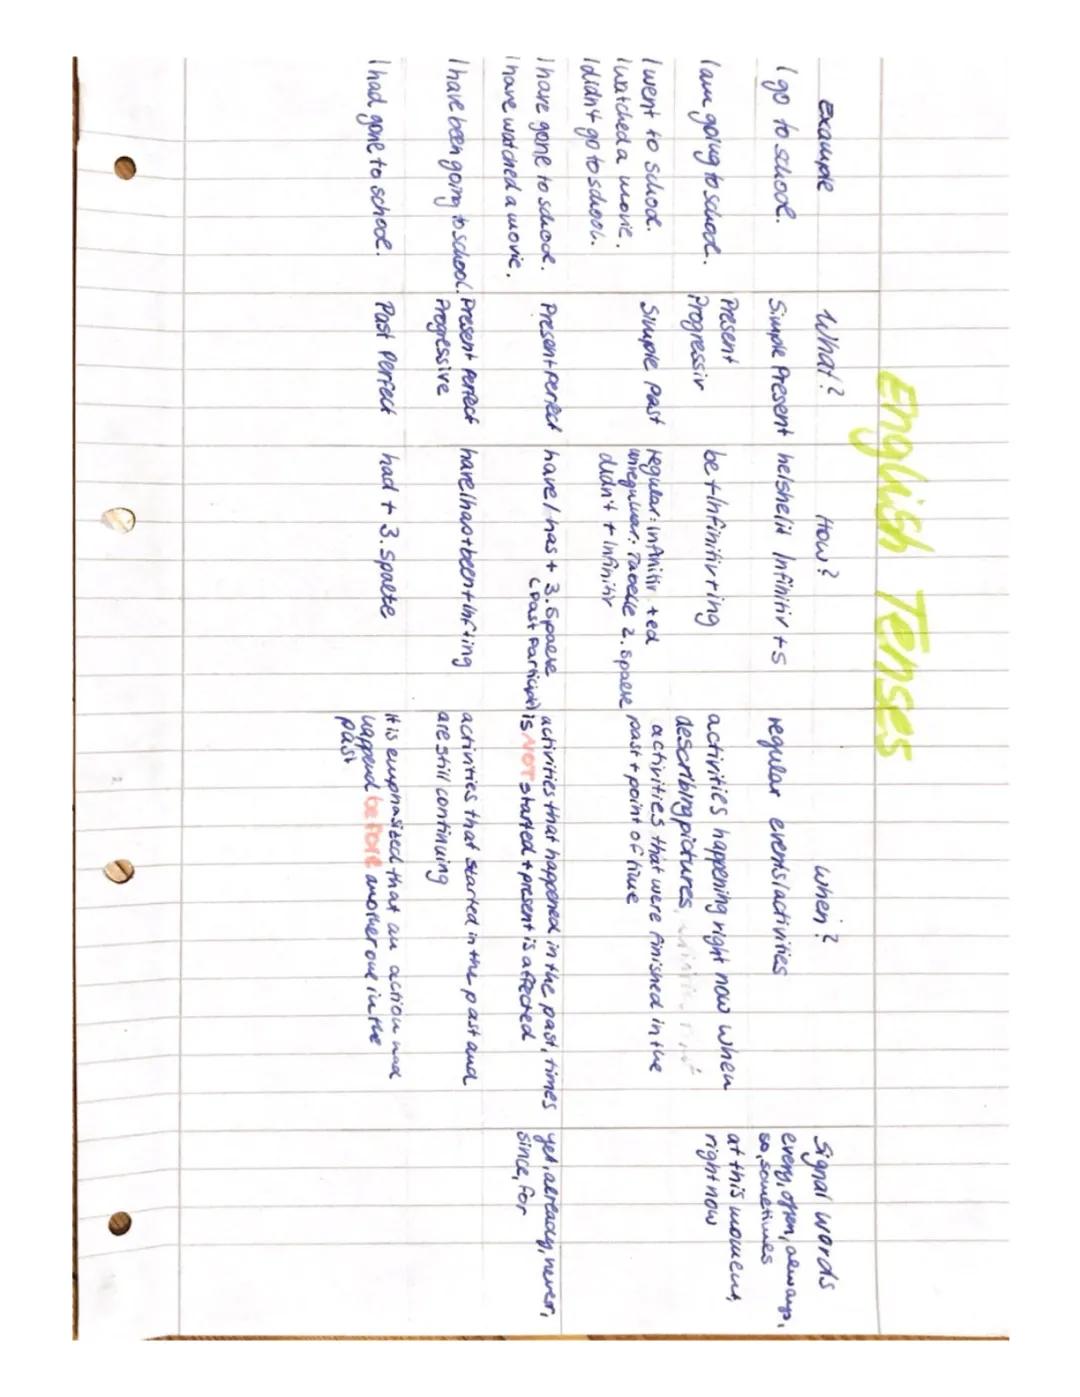 English Tenses
example What? How? when? Signal words
I go to school. Simple Present he/she/it Infinitiv +s regular events/activities every, often, always,
so, sometimes
I am going to school. Present be+Infinitiv+ing activities happening right now when at this moment,
Progressiv describing pictures, right now
I went to school. Simple Past regular: infinitiv +ed activities that were finished in the
I watched a movie. unregular: Tabelle 2. Spalte past + point of time
I didn't go to school. didn't + Infinitiv
I have gone to school. Present Perfect have/has + 3. Spalte activities that happened in the past, times yet, already, never,
I have watched a movie. (Past Participle) is NOT started + present is affected since, for
I have been going to school. Present Perfect have/has+been+Inf+ing activities that started in the past and
Progressive are still continuing
I had gone to school. Past Perfect had + 3. Spalte It is emphasized that an action had
happend before another one in the
past